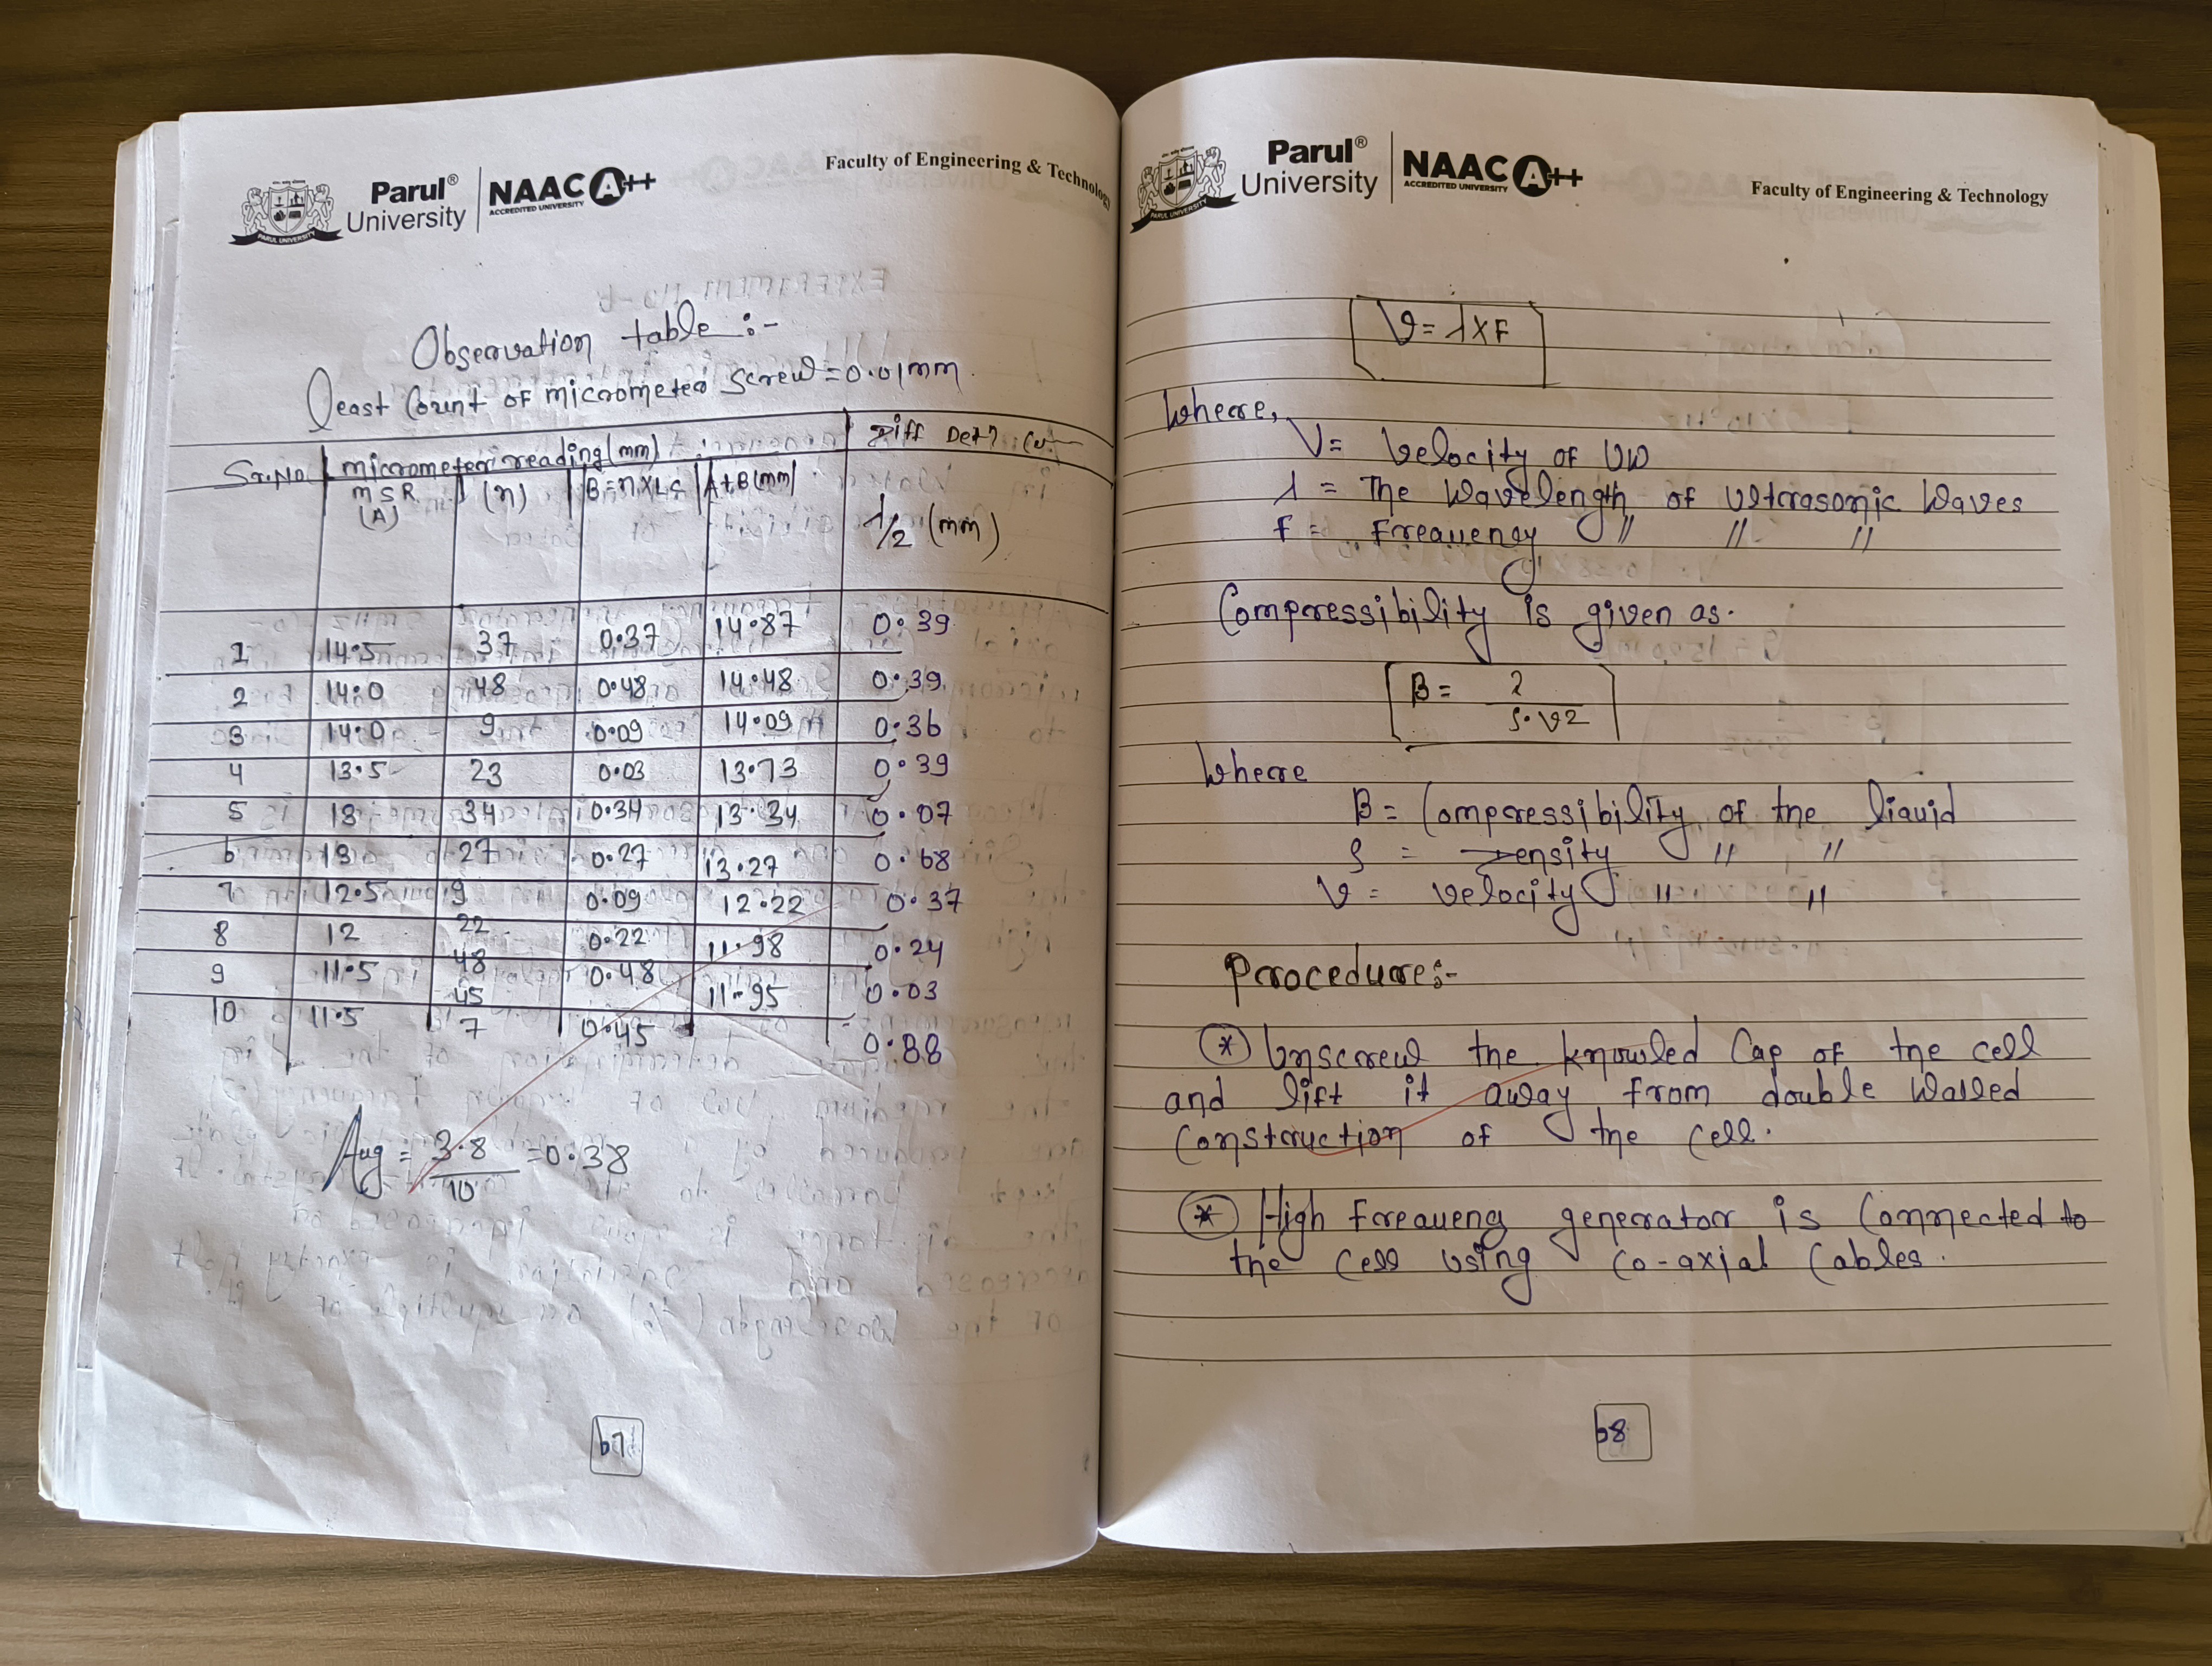 Parul® University NAAC A++ ACCREDITED UNIVERSITY
PARUL UNIVERSITY
Faculty of Engineering & Technology
Observation table :-
Least Count of micrometer screw = 0.01mm.
Sr.No. micrometer reading (mm) Diff Det?
MSR (A) (n) B=n×LC A+B (mm) λ/2 (mm)
1 14.5 37 0.37 14.87 0.39
2 14.0 48 0.48 14.48 0.39
3 14.0 9 0.09 14.09 0.36
4 13.5 23 0.03 13.73 0.39
5 13 34 0.34 13.34 0.07
6 13 27 0.27 13.27 0.68
7 12.5 9 0.09 12.22 0.37
8 12 22 0.22 11.98 0.24
9 11.5 48 0.48 11.95 0.03
10 11.5 45 0.45 0.88
7
Avg = 3.8/10 = 0.38
67
Parul® University NAAC A++ ACCREDITED UNIVERSITY
PARUL UNIVERSITY
Faculty of Engineering & Technology
V = λ×F
Where,
V = Velocity of UW
λ = The Wavelength of Ultrasonic Waves
F = Frequency " " "
Compressibility is given as.
β = 2/ρ.v2
Where
β = Compressibility of the liquid
ρ = Density " "
V = velocity " "
Procedure:-
* Unscrew the knowled Cap of the cell
and lift it away from double walled
construction of the cell.
* High Frequeng generator is Connected to
the cell using co-axial Cables.
68